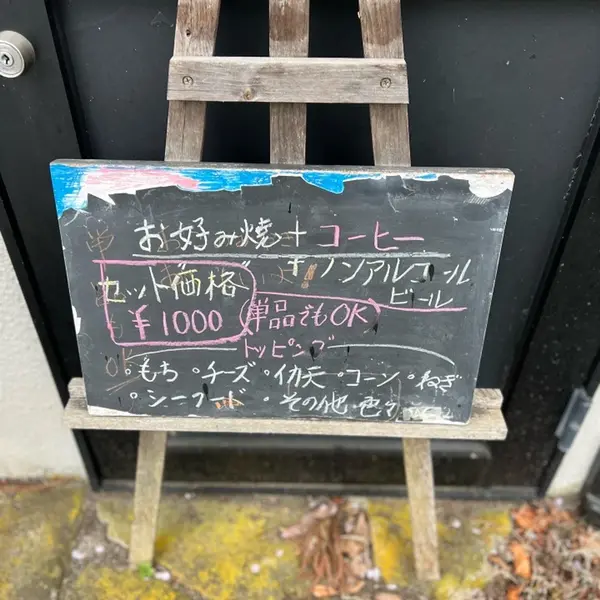 お好み焼+コーヒー
ノンアルコール
ビール
セット価格
¥1000
単品でもOK
トッピング
・もち ・チーズ ・イカ天 ・コーン ・ねぎ
・シーフード ・その他